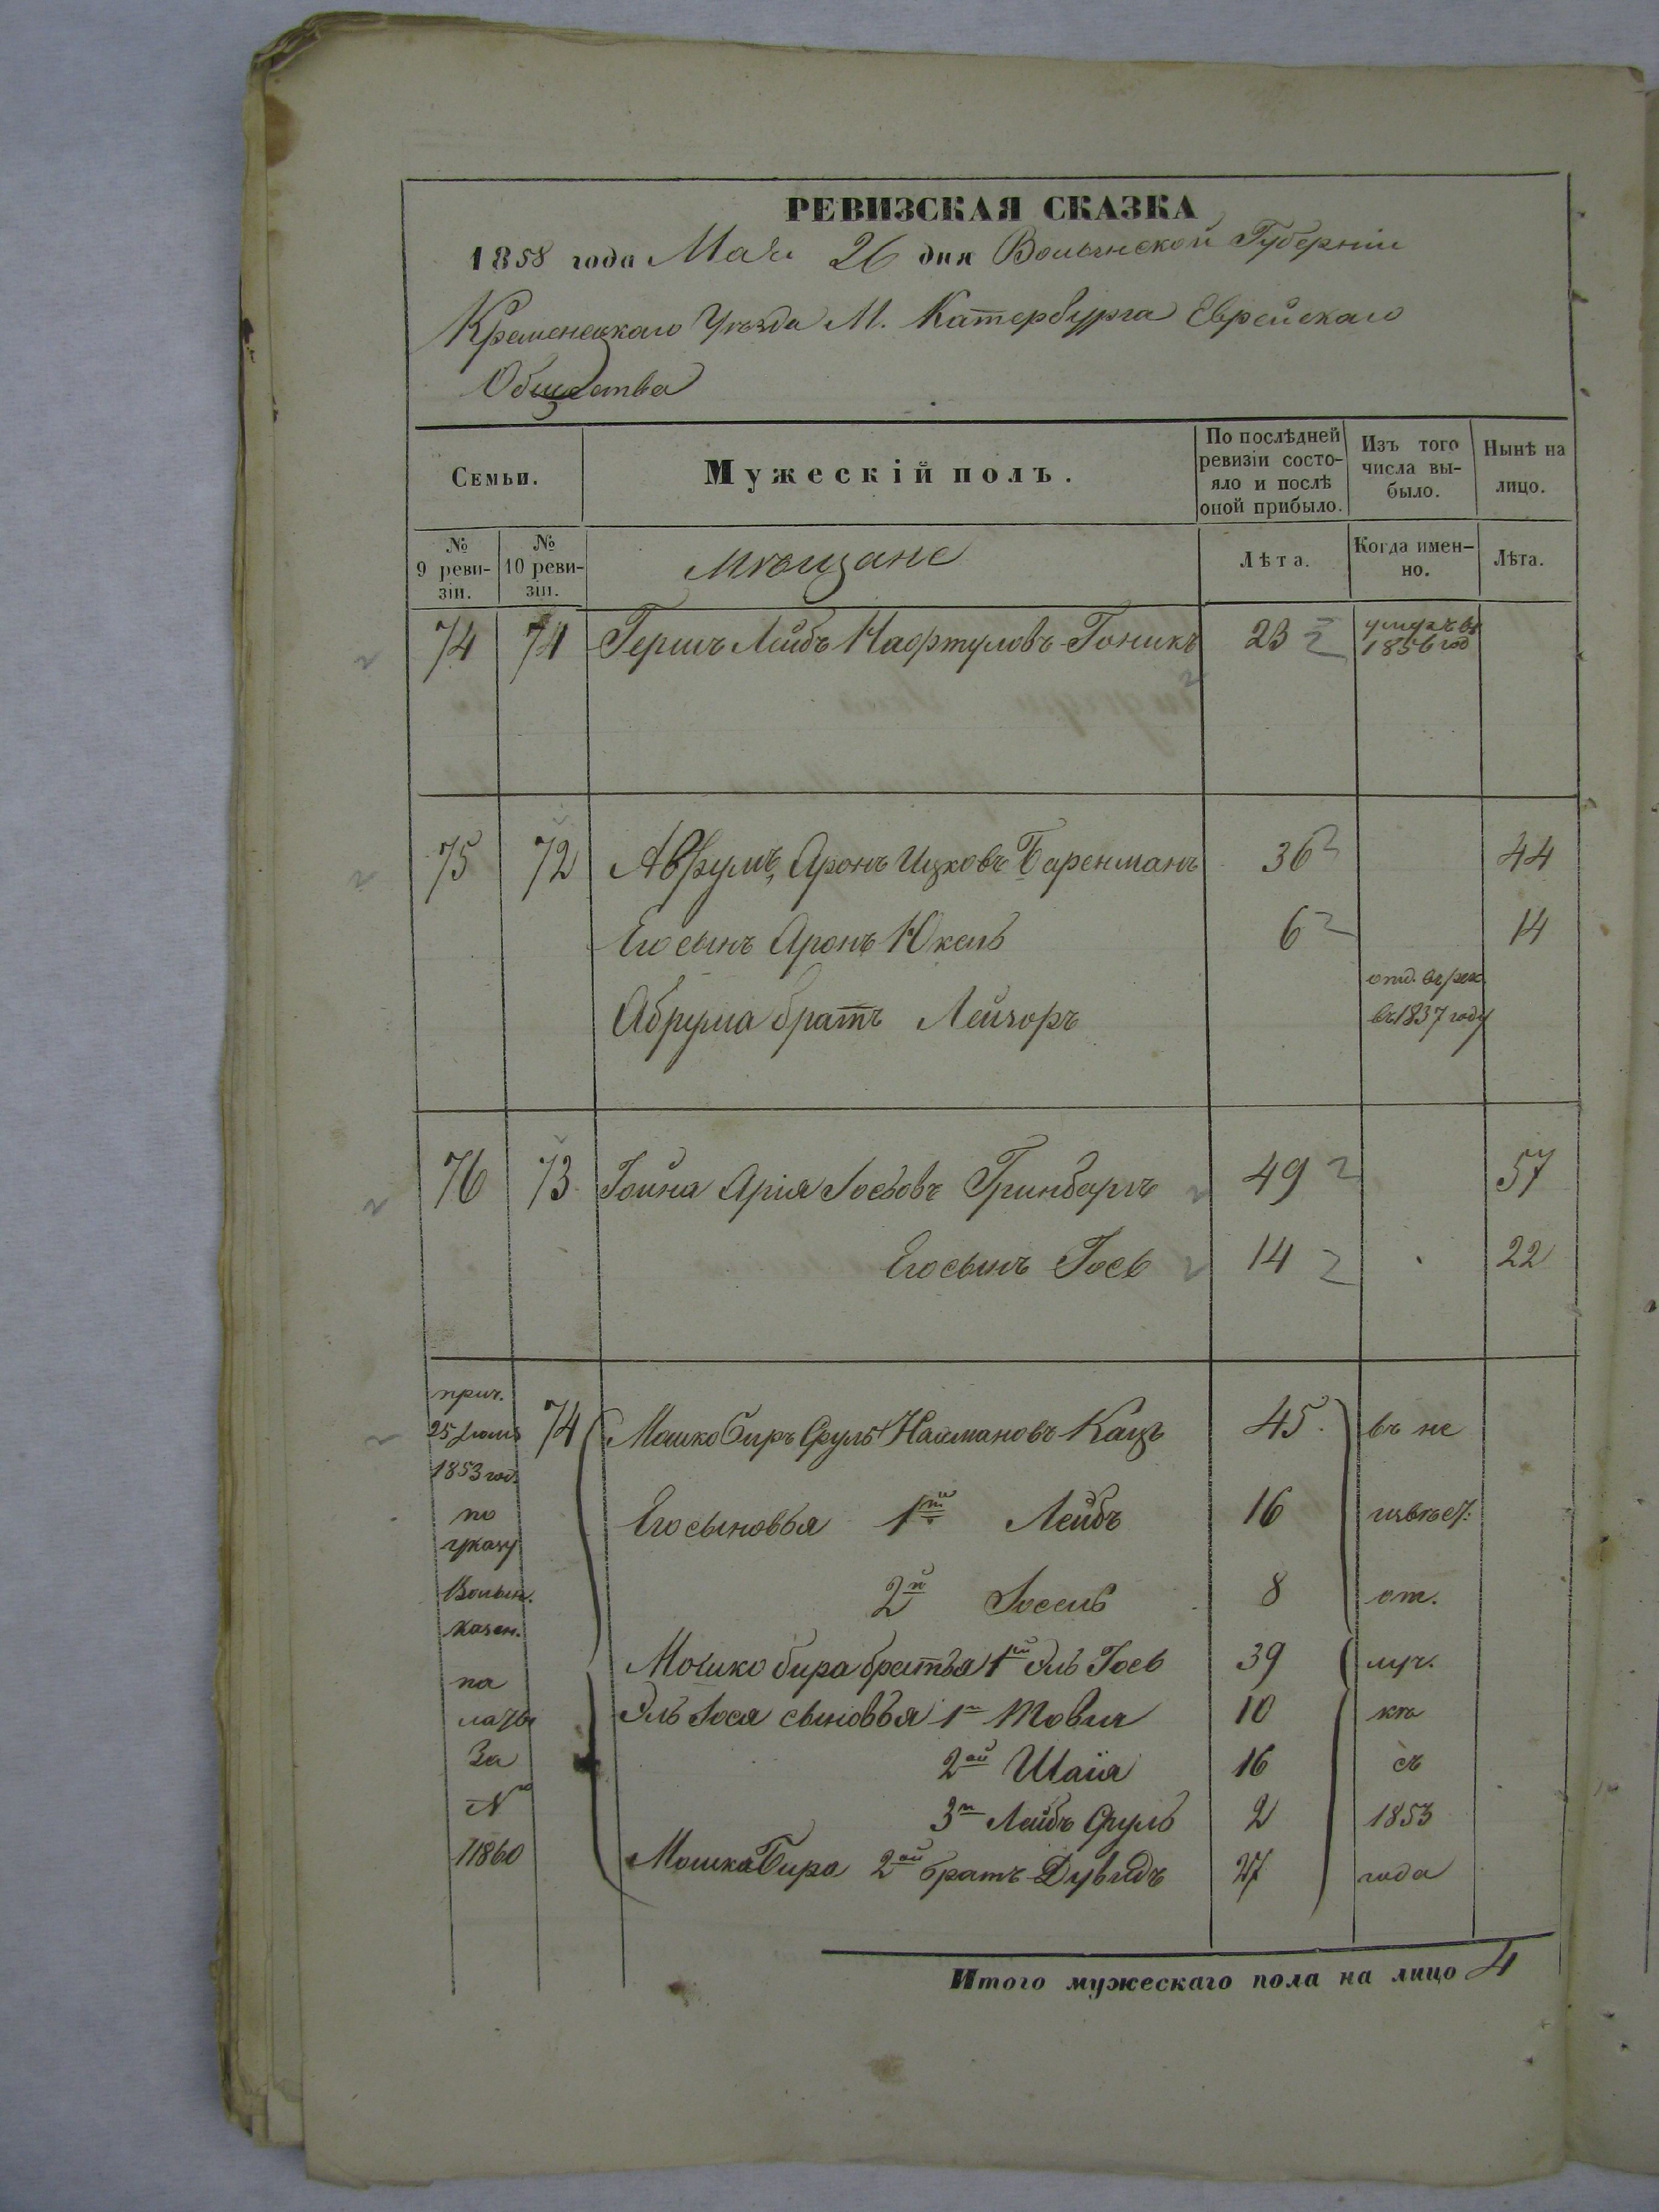 РЕВИЗСКАЯ СКАЗКА
1858 года Мая 26 дня Волынской Губерніи
Кременецкаго Уѣзда М. Катербурга Еврейскаго
Общества
Семьи. Мужескій полъ. По послѣдней ревизіи состо- яло и послѣ оной прибыло. Изъ того числа вы- было. Нынѣ на лицо.
№ 9 реви- зіи. № 10 реви- зіи. Мѣщане Лѣта. Когда имен- но. Лѣта.
74 71 Гершъ Лейбъ Нафтуловъ Гоникъ 23 1856 год
75 72 Аврумъ Аронъ Ицковъ Баренманъ 36 44
Его сынъ Аронъ Юкель 6 14
Абрума братъ Лейзоръ отд. въ рек. въ 1837 году
76 73 Іойна Арія Іосьовъ Гринбаргъ 49 57
Его сынъ Іось 14 22
прич. 25 1853 год. по указу Волын. казен. па латы За № 11860
74 Мошко Биръ Сруль Наймановъ Кацъ 45 въ не
Его сыновья 1й Лейбъ 16 извѣст:
2й Іосель 8 от.
Мошко бира братья 1й Эль Іось 39 луч.
Эль Іося сыновья 1й Товія 10 ки
2ой Шаія 16 съ
3й Лейбъ Сруль 2 1853
Мошка Бира 2ой братъ Дувидъ 27 года
Итого мужескаго пола на лицо 4